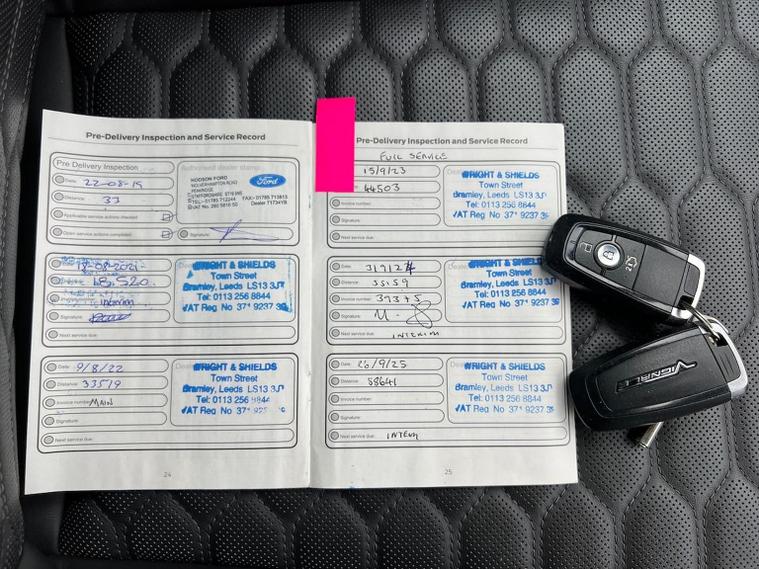 Pre-Delivery Inspection and Service Record
Pre Delivery Inspection
Authorised dealer stamp
Date: 22-08-19
Distance: 33
Applicable service actions checked
Open service actions completed
Signature:
HODSON FORD
WOLVERHAMPTON ROAD
PENKRIDGE
STAFFORDSHIRE
TEL: 01785 712244 FAX: 01785 713815
Dealer 71734YB
Ford
18-08-2021
18,520
Interim
Next service due:
WRIGHT & SHIELDS
Town Street
Bramley, Leeds LS13 3J
Tel: 0113 256 8844
VAT Reg No 37* 9237 3
Date: 9/8/22
Distance: 33519
Invoice number: MAIN
Signature:
Next service due:
WRIGHT & SHIELDS
Town Street
Bramley, Leeds LS13 3J
Tel: 0113 256 8844
VAT Reg No 37*
24
Pre-Delivery Inspection and Service Record
FULL SERVICE
15/9/23
44503
Invoice number:
Signature:
Next service due:
WRIGHT & SHIELDS
Town Street
Bramley, Leeds LS13 3J
Tel: 0113 256 8844
VAT Reg No 37* 9237 3
Date:
Distance: 55159
Invoice number:
Signature:
Next service due: INTERIM
WRIGHT & SHIELDS
Town Street
Bramley, Leeds LS13 3J
Tel: 0113 256 8844
VAT Reg No 37* 9237 3
Date: 26/9/25
Distance: 58641
Invoice number:
Signature:
Next service due: INTERIM
WRIGHT & SHIELDS
Town Street
Bramley, Leeds LS13 3J
Tel: 0113 256 8844
VAT Reg No 37* 9237 3
25
VIGNALE